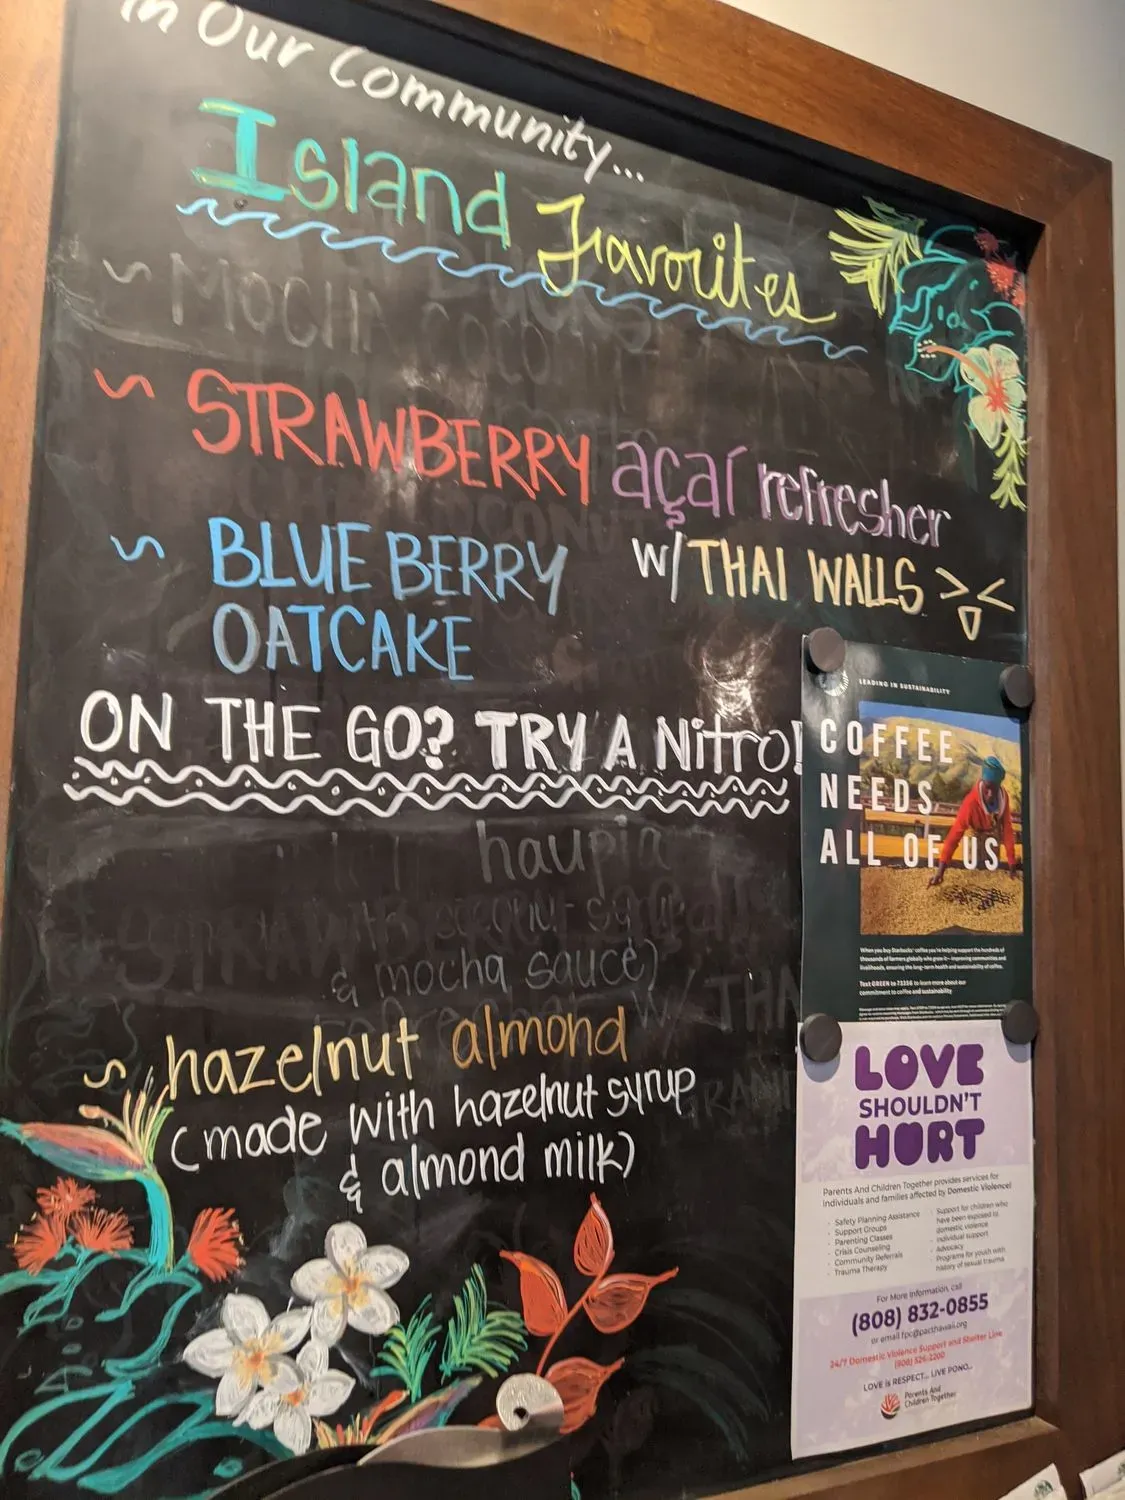 in Our Community...
Island Favorites
~ MOCHA COCONUT
~ STRAWBERRY açaí refresher
w/ THAI WALLS
~ BLUEBERRY
OATCAKE
ON THE GO? TRY A Nitro!
haupia
& mocha sauce)
~ hazelnut almond
(made with hazelnut syrup
& almond milk)
LEADING IN SUSTAINABILITY
COFFEE
NEEDS
ALL OF US
When you buy Starbucks® coffee you're helping support the hundreds of
thousands of farmers globally who grow it—improving communities and
livelihoods, ensuring the long-term health and sustainability of coffee.
Text GREEN to 73356 to learn more about our
commitment to coffee and sustainability
LOVE
SHOULDN'T
HURT
Parents And Children Together provides services for
individuals and families affected by Domestic Violence!
- Safety Planning Assistance
- Support Groups
- Parenting Classes
- Crisis Counseling
- Community Referrals
- Trauma Therapy
- Support for children who
have been exposed to
domestic violence
- Individual support
- Advocacy
- Programs for youth with
history of sexual trauma
For More Information, call
(808) 832-0855
or email fpc@pacthawaii.org
24/7 Domestic Violence Support and Shelter Line
(808) 526-2200
LOVE is RESPECT... LIVE PONO...
Parents And
Children Together